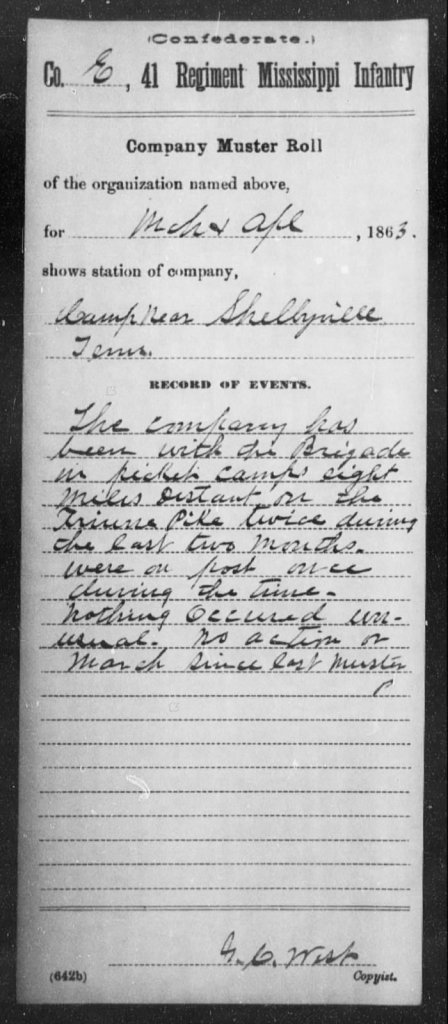 (Confederate.)
Co. E, 41 Regiment Mississippi Infantry
Company Muster Roll
of the organization named above,
for Mch & Apl, 1863.
shows station of company,
Camp Near Shelbyville
Tenn.
RECORD OF EVENTS.
The company has
been with the Brigade
in picket camps eight
miles distant on the
Triune Pike twice during
the last two months.
were on post once
during the time.
Nothing Occured un-
usual. No action or
March since last muster
G. C. West
(642b) Copyist.